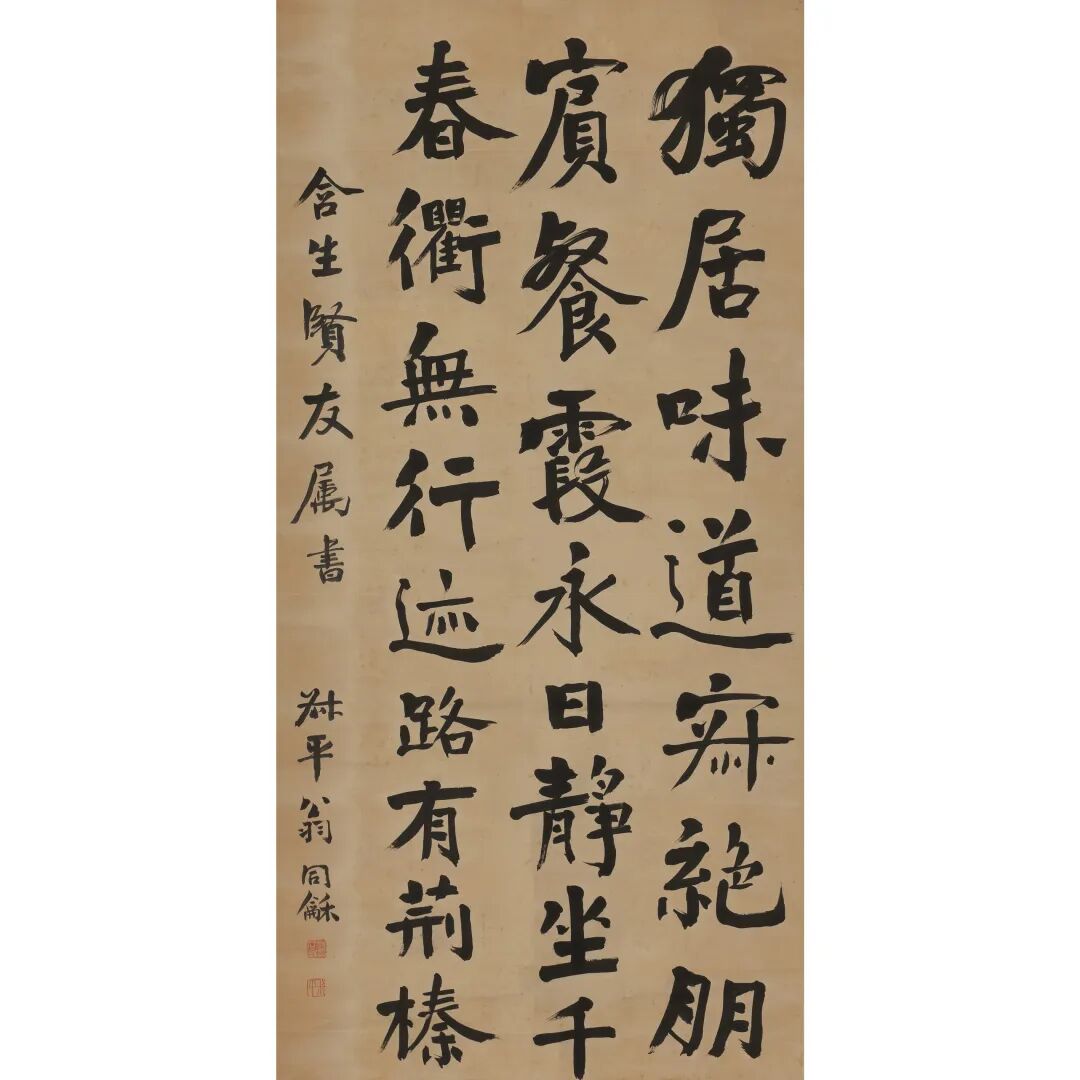 獨居味道寂絶朋
賓餐霞永日靜坐千
春衢無行迹路有荊榛
含生賢友属書 叔平翁同龢